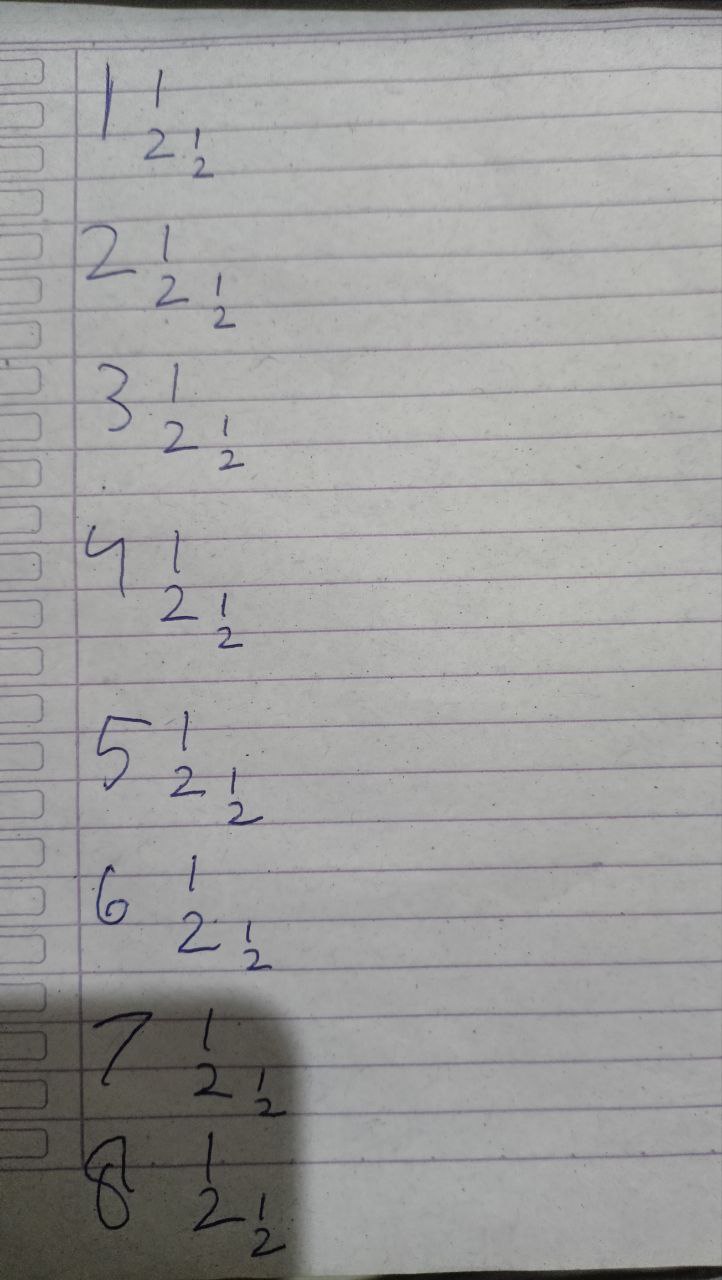 1 1
2 1
2
2 1
2 1
2
3 1
2 1
2
4 1
2 1
2
5 1
2 1
2
6 1
2 1
2
7 1
2 1
2
8 1
2 1
2